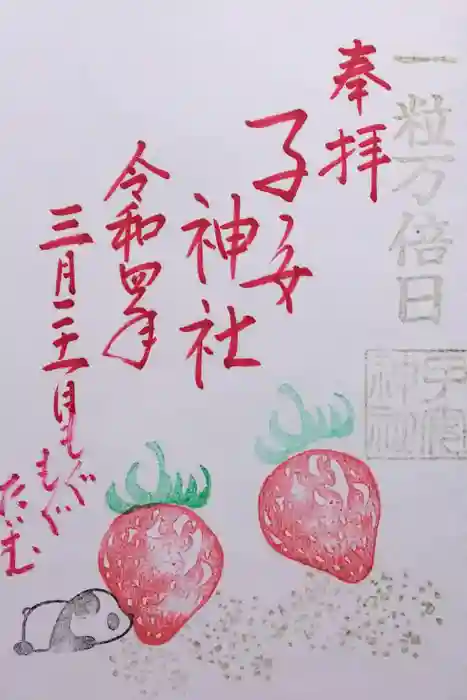 一粒万倍日
奉拝
子安
神社
令和四年
三月二十一日
もぐ
もぐ
たいむ
子安
神社